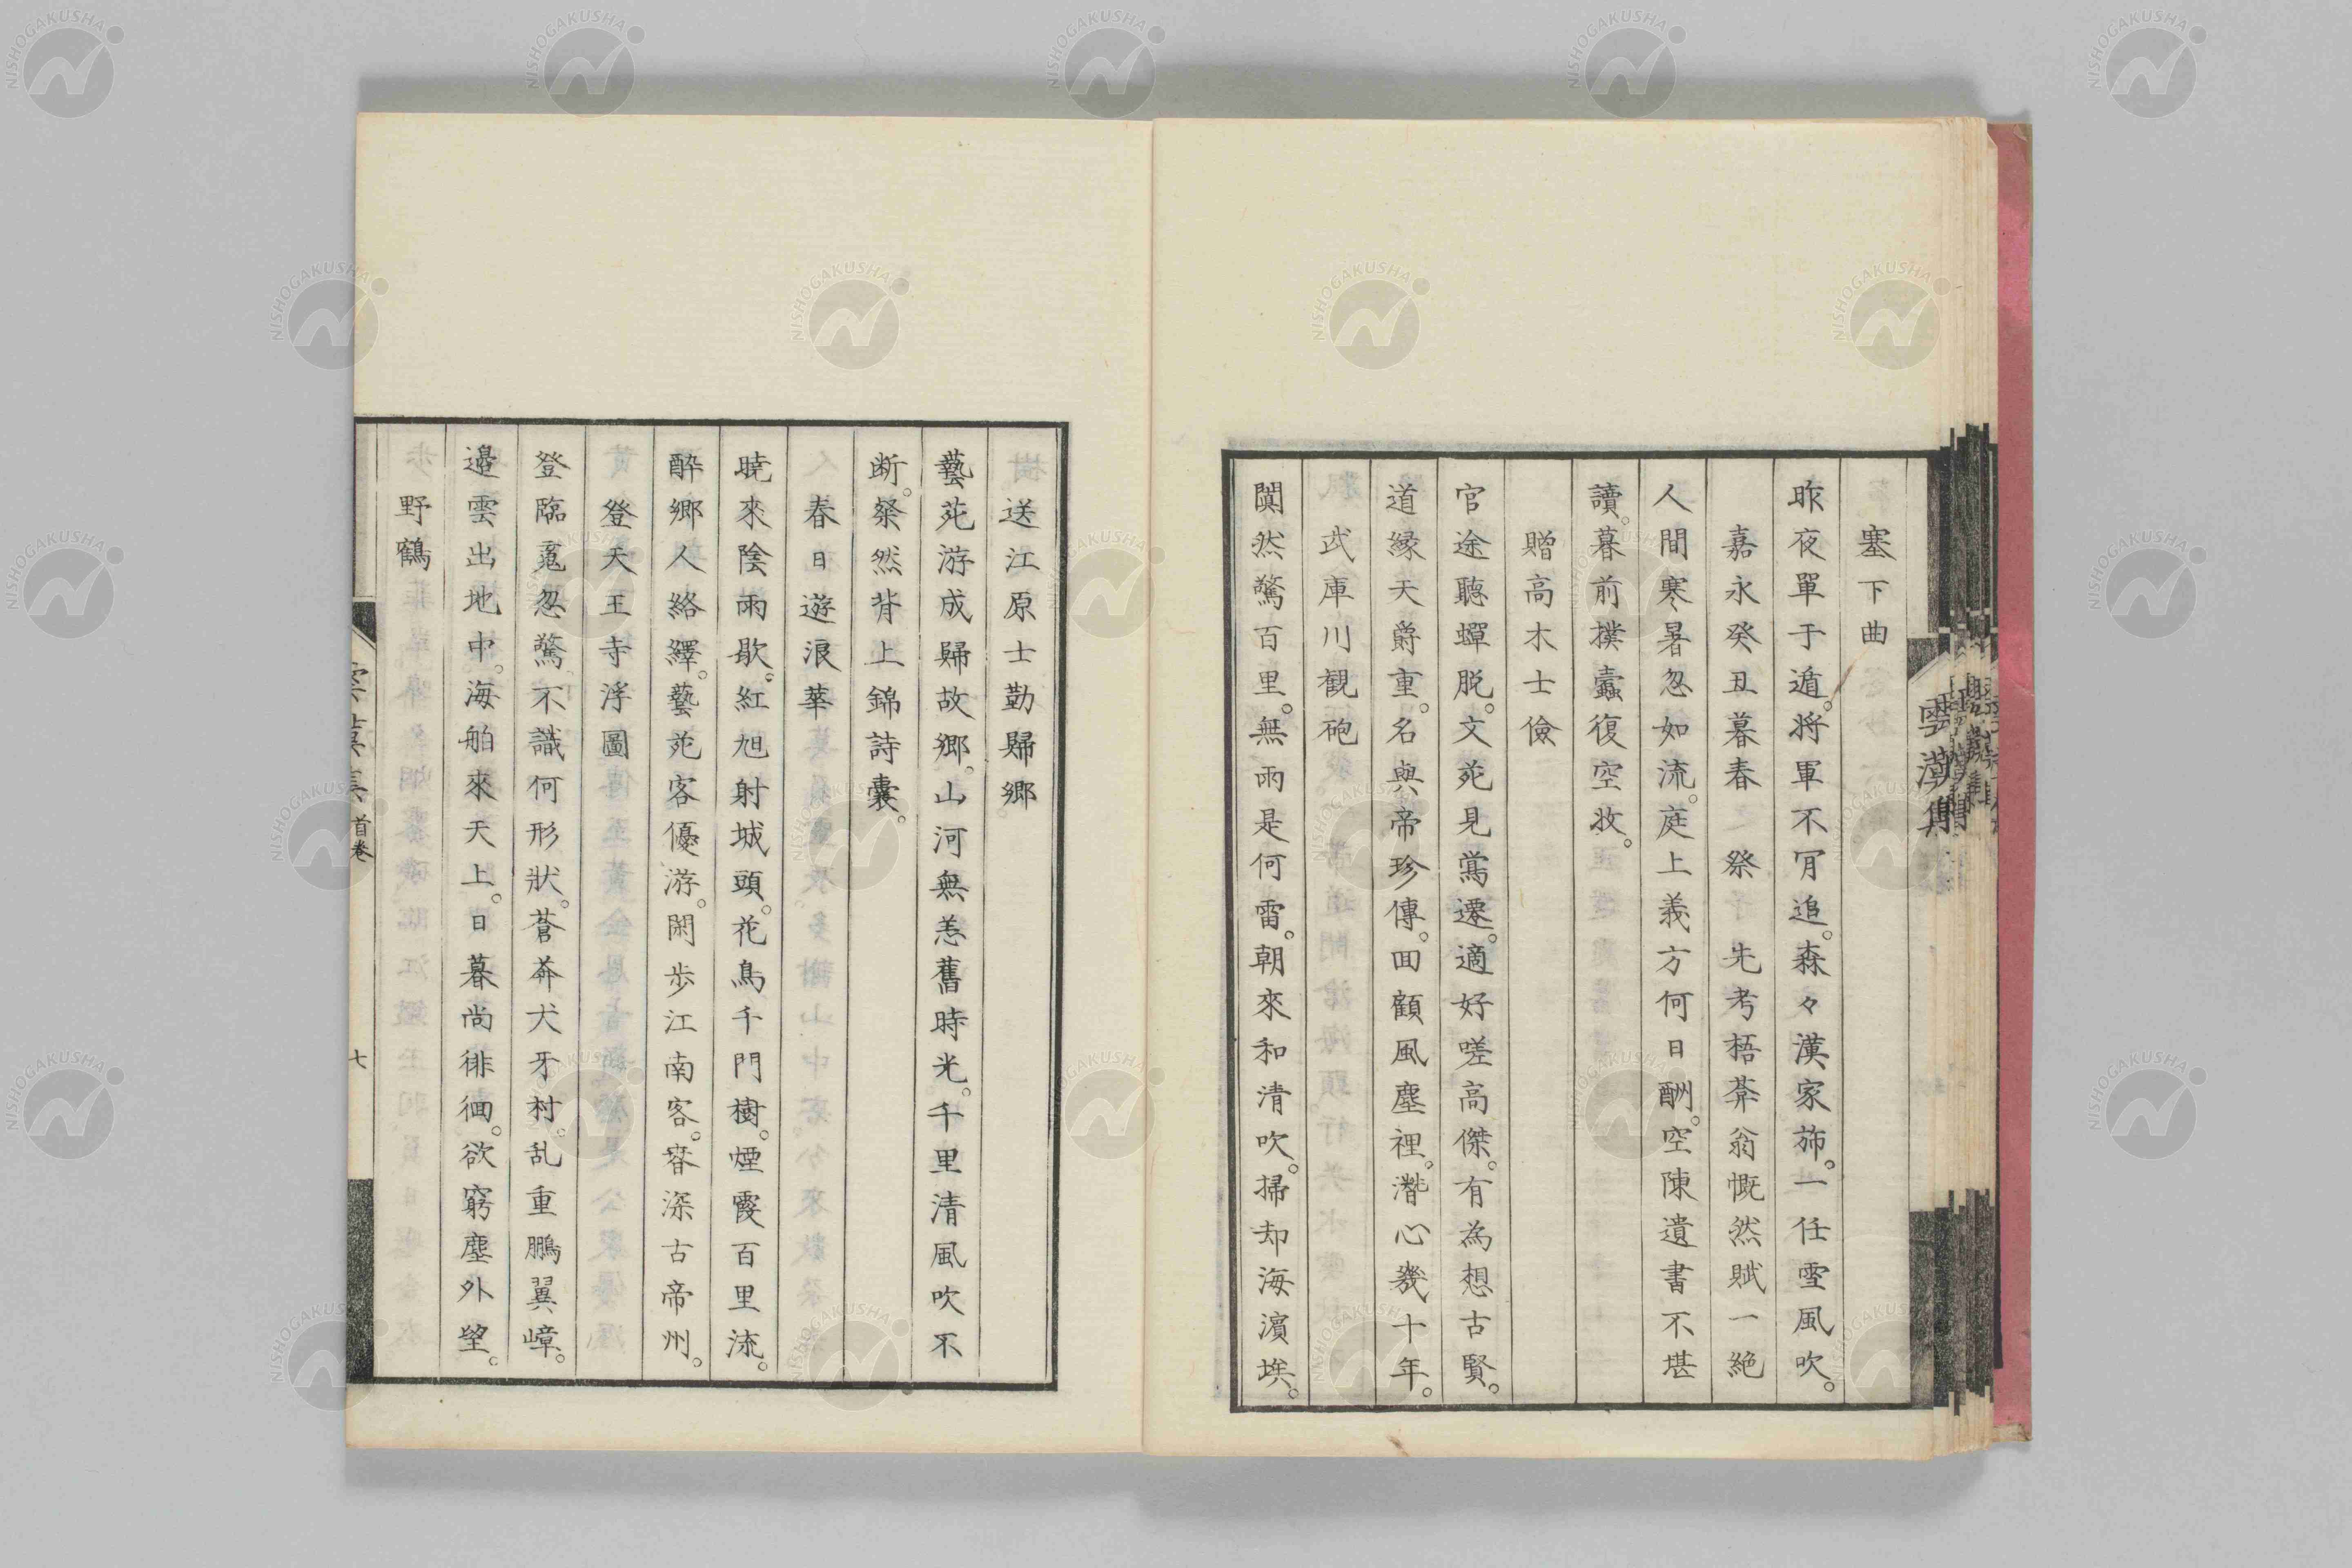 塞下曲
昨夜單于遁。将軍不肎追。森々漢家斾。一任雪風吹。
嘉永癸丑暮春　祭　先考梧莽翁慨然賦一絶
人間寒暑忽如流。庭上義方何日酬。空陳遺書不堪
讀。暮前撲蠹復空收。
贈高木士儉
官途聽蟬脱。文苑見鶯遷。適好嗟高傑。有為想古賢。
道縁天爵重。名與帝珍傳。回顧風塵裡。潛心幾十年。
武庫川観砲
闐然驚百里。無雨是何雷。朝來和清吹。掃却海濱埃。
送江原士勤歸郷
藝苑游成歸故郷。山河無恙舊時光。千里清風吹不
断。粲然背上錦詩囊。
春日遊浪華
暁來陰雨歇。紅旭射城頭。花鳥千門樹。煙霞百里流。
酔郷人絡繹。藝苑客優游。閑歩江南客。春深古帝州。
登天王寺浮圖
登臨鬼忽驚。不識何形狀。蒼莽犬牙村。乱重鵬翼嶂。
邉雲出地中。海舶來天上。日暮尚徘徊。欲窮塵外望。
野鶴
首巻
七
NISHOGAKUSHA